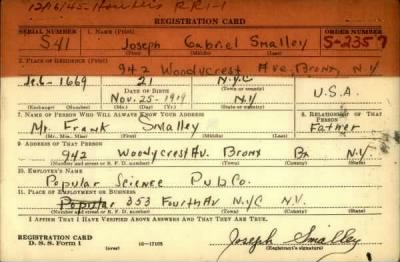 12/16/45-Hunters RR1-1
REGISTRATION CARD
SERIAL NUMBER 1. NAME (Print) ORDER NUMBER
S41 Joseph Gabriel Smalley S-2357
2. PLACE OF RESIDENCE (Print)
942 Woodycrest Ave, Bronx, N.Y
6-1669 21 N.Y.C U.S.A.
Nov. 25-1919 N.Y
(Exchange) (Number) (Mo.) (Day) (Yr.) (State or country)
7. NAME OF PERSON WHO WILL ALWAYS KNOW YOUR ADDRESS 8. RELATIONSHIP OF THAT PERSON
Mr. Frank Smalley Father
(Mr., Mrs., Miss) (First) (Middle) (Last)
9. ADDRESS OF THAT PERSON
942 Woodycrest Av. Bronx Bx N.Y
(Number and street or R. F. D. number) (Town) (County) (State)
10. EMPLOYER'S NAME
Popular Science Pub Co.
11. PLACE OF EMPLOYMENT OR BUSINESS
Popular 353 Fourth Av N.Y.C N.Y.
(Number and street or R. F. D. number) (Town) (County) (State)
I AFFIRM THAT I HAVE VERIFIED ABOVE ANSWERS AND THAT THEY ARE TRUE.
REGISTRATION CARD
D. S. S. Form 1 Joseph Smalley
(Registrant's signature)